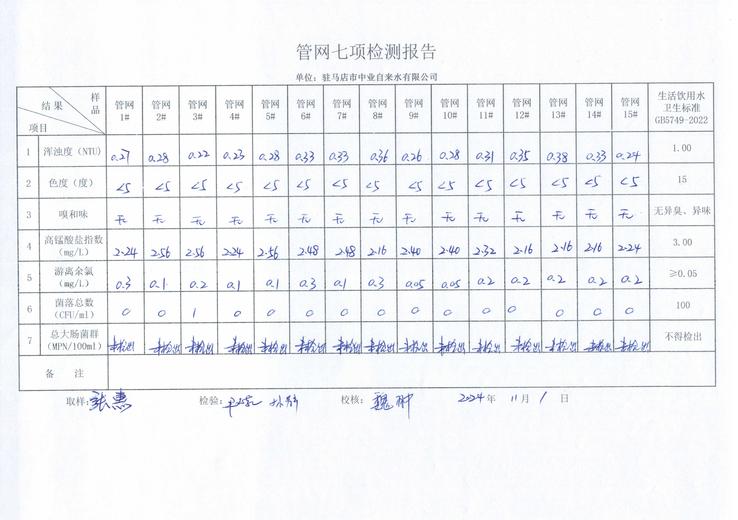 管网七项检测报告
单位：驻马店市中业自来水有限公司
结果 样品 项目 管网1# 管网2# 管网3# 管网4# 管网5# 管网6# 管网7# 管网8# 管网9# 管网10# 管网11# 管网12# 管网13# 管网14# 管网15# 生活饮用水卫生标准GB5749-2022
1 浑浊度（NTU） 0.27 0.28 0.22 0.23 0.28 0.33 0.33 0.36 0.26 0.28 0.31 0.35 0.38 0.33 0.24 1.00
2 色度（度） <5 <5 <5 <5 <5 <5 <5 <5 <5 <5 <5 <5 <5 <5 <5 15
3 嗅和味 无 无 无 无 无 无 无 无 无 无 无 无 无 无 无 无异臭、异味
4 高锰酸盐指数（mg/L） 2.24 2.56 2.56 2.24 2.56 2.48 2.48 2.16 2.40 2.40 2.32 2.16 2.16 2.16 2.24 3.00
5 游离余氯（mg/L） 0.3 0.1 0.2 0.1 0.1 0.3 0.1 0.3 0.05 0.05 0.2 0.2 0.2 0.2 0.2 ≥0.05
6 菌落总数（CFU/ml） 0 0 1 0 0 0 0 0 0 0 0 0 0 0 0 100
7 总大肠菌群（MPN/100ml） 未检出 未检出 未检出 未检出 未检出 未检出 未检出 未检出 未检出 未检出 未检出 未检出 未检出 未检出 未检出 不得检出
备 注
取样：张惠 检验： 校核：魏翀 2024年 11月 1日